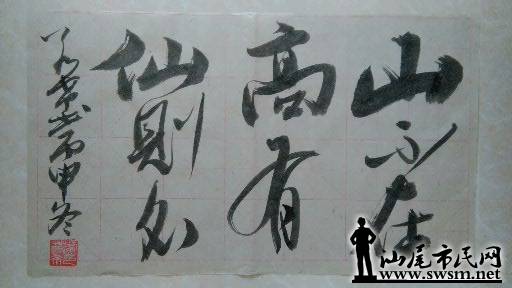 山不在
高有
仙則名
丙申冬
汕尾市民网
www.swsm.net